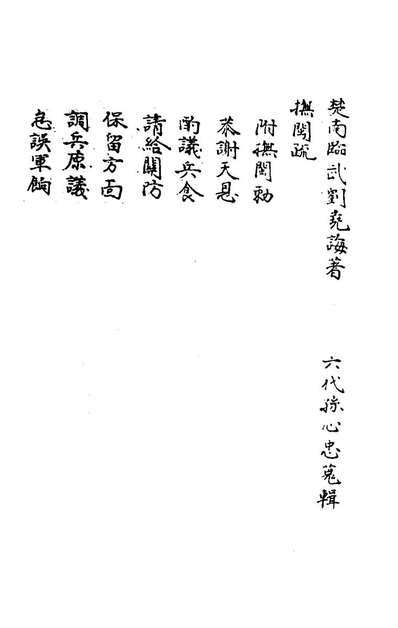 楚南臨武劉堯誨著 六代孫心忠蒐輯
撫閩疏
附撫閩勅
恭謝天恩
酌議兵食
請給關防
保留方面
調兵原議
急誤軍餉